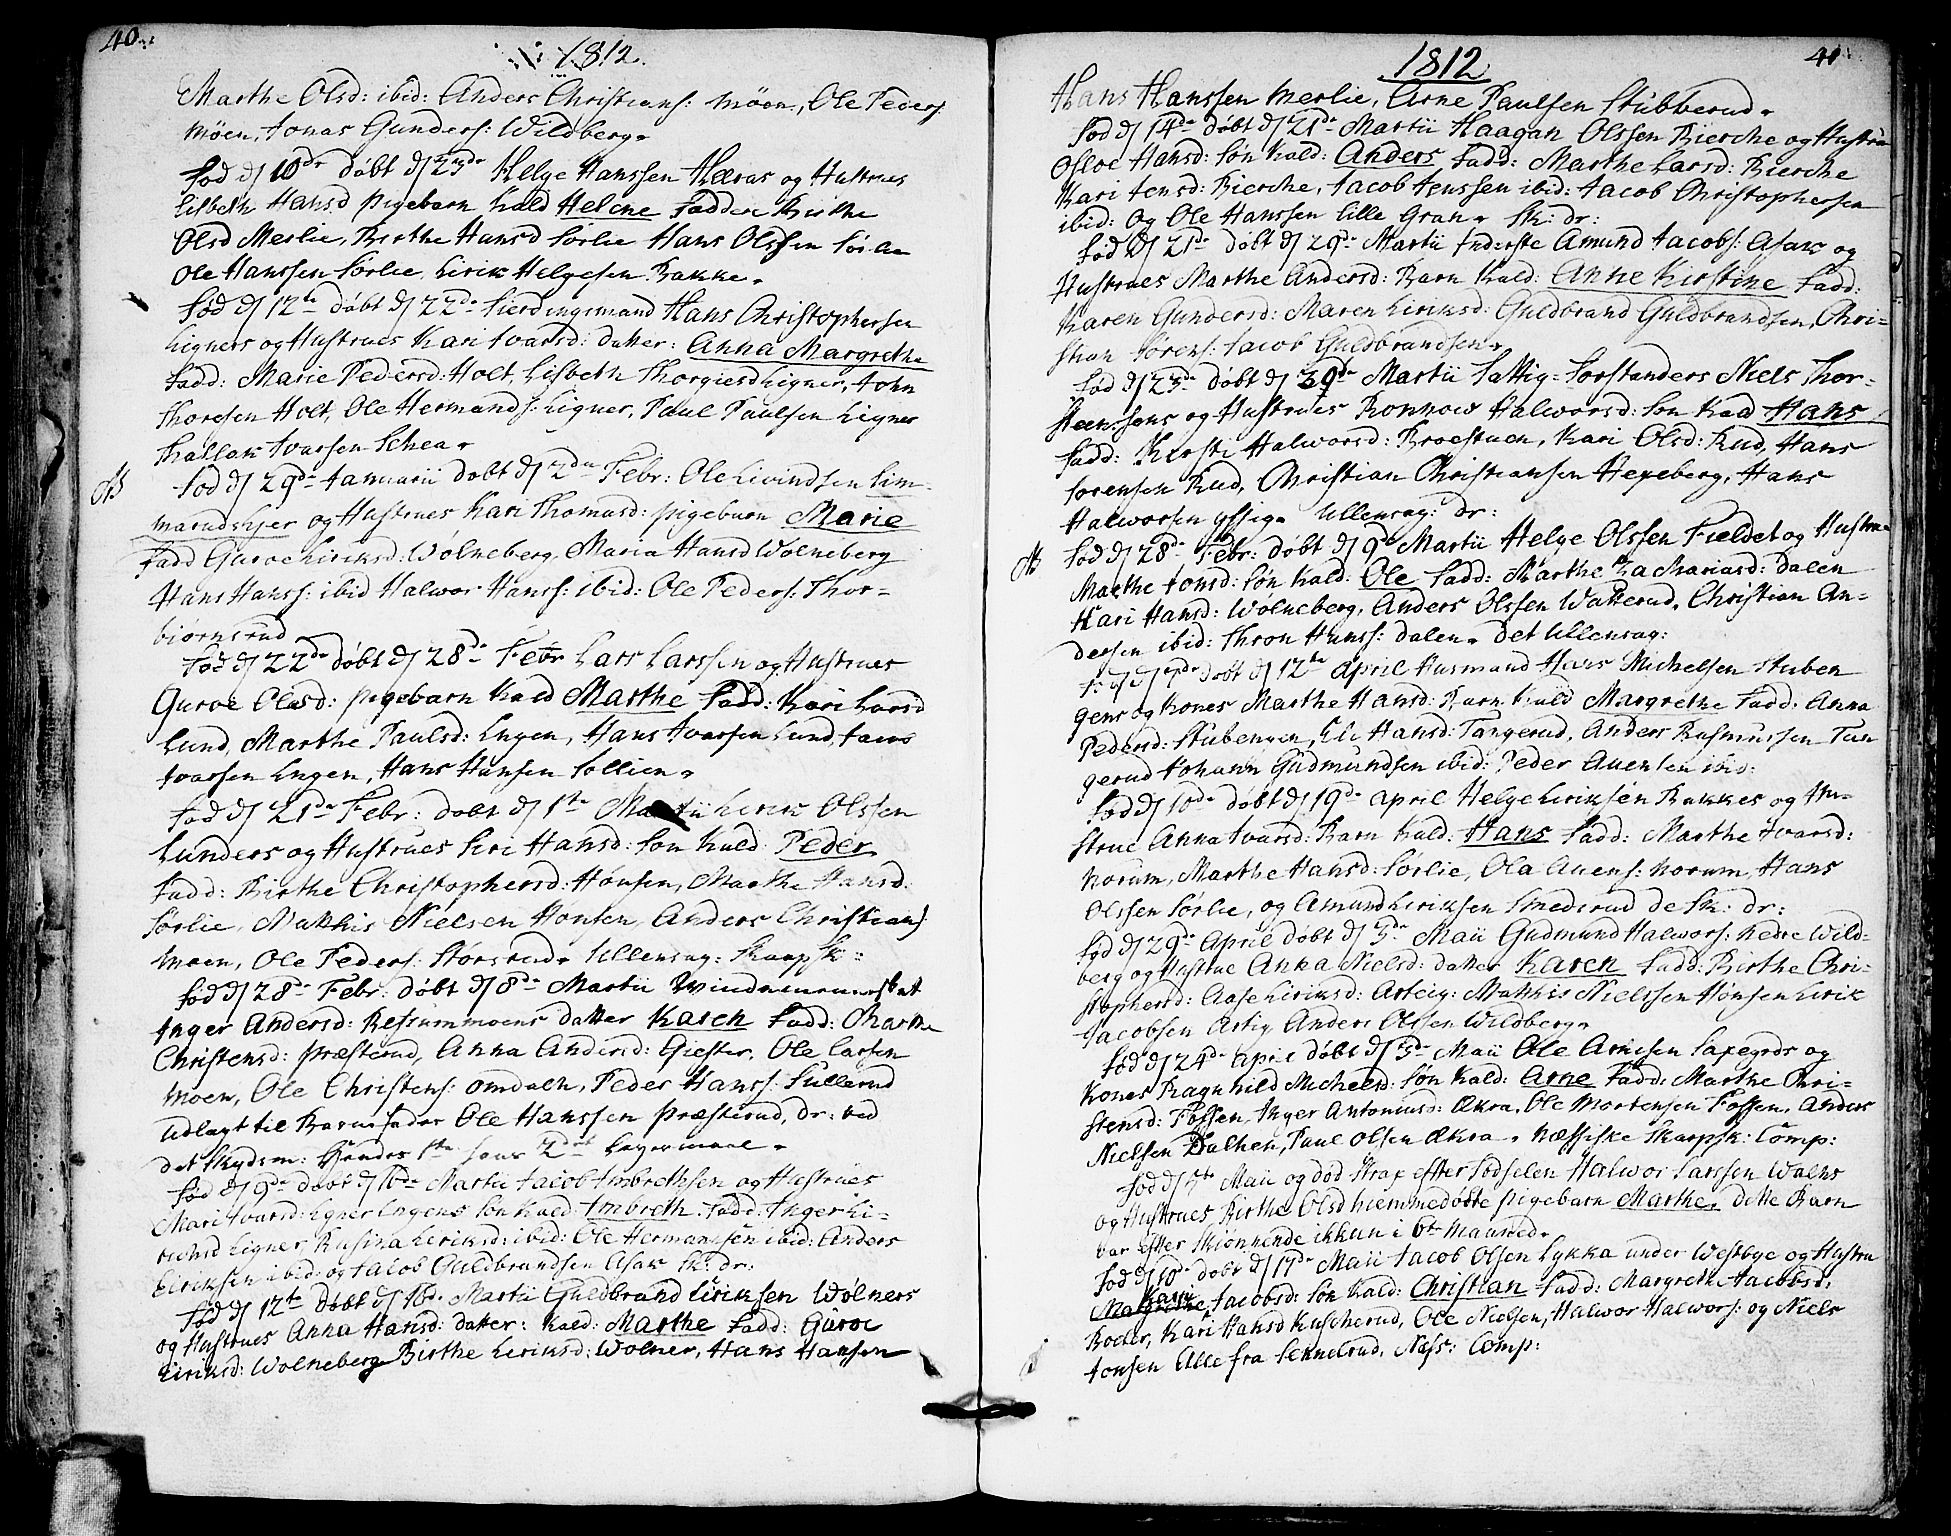 40.
1812.
Marthe Olsd: ibid: Anders Christians: Möen, Ole Peders:
Möen, Jonas Gunders: Wildberg.
Fød d 10de døbt d 23de Helge Hanssen Hæras og Hustrues
Lisbeth Hansd pigebarn kald Helene Fadder Birthe
Olsd Merlie, Birthe Hansd Sørlie Hans Olssen Sørlie
Ole Hanssen Sørlie, Eirik Helgesen Bakke.
Fød d 12te døbt d 22de Fierdingsmand Hans Christophersen
Ligners og Hustrues Kari Ivarsd: datter: Anna Margrethe
Fadd: Marie Pedersd: Holt, Lisbeth Thorgiersd Ligner, John
Thoresen Holt, Ole Hermands: Ligner, Paul Paulsen Ligner
Thallak Ivarsen Schea.
NB Fød d 29de Januarii døbt d 2den Febr: Ole Eivindsen Sim-
marudskjer og Hustrues Kari Thomasd: pigebarn Marie
Fadd Guroe Eiriksd: Wölneberg, Maria Hansd Wölneberg
Hans Hanss: ibid Halwor Hanss: ibid: Ole Peders: Thor-
biørnsrud
Fød d 22de døbt d 28de Febr Lars Larssen og Hustrues
Guroe Olasd: pigebarn kald Marthe Fadd: Kari Larsd
Lund, Marthe Paulsd: Engen, Hans Ivarsen Lund,
Ivarsen Engen, Hans Hansen Sollien.
Fød d 21de Febr: døbt d 1te Martii Eirik Olssen
Lunders og Hustrues Siri Hansd: Søn kald Peder
Fadd: Birthe Christophersd: Hönsen, Marthe Hansd:
Sørlie, Mathis Nielsen Hönsen, Anders Christians:
Moen, Ole Peders: Störsrud. Ullensag: Skarpsk:
Fød d 28de Febr: døbt d 8de Martii
Inger Andersd: Ressummoens datter Karen Fadd: Marthe
Christensd: Præsterud, Anna Andersd: Giester, Ole Larsen
Moen, Ole Christens: Omdalen, Peder Hanss: Sullerud
Udlagt til Barnefader Ole Hanssen Præsterud, dr: ved
det Skydsm: Hendes 1te hans 2det Leyermaal.
Fød d 9de døbt d 16de Martii Jacob Imbrethsen og Hustrues
Mari Ivarsd: Ligner Engens Søn kald: Imbreth. Fadd: Inger Ei-
riksd Ligner Rusina Eiriksd: ibid: Ole Hermansen ibid: Anders
Eiriksen ibid: og Jacob Guldbrandsen Asak Sk: dr:
Fød d 12te Døbt d 16de Martii Guldbrand Eiriksen Wölners
og Hustrues Anna Hansd: datter: kald: Marthe Fadd: Guroe
Eiriksd: Wolneberg Birthe Eiriksd: Wolner, Hans Hansen
1812
41
Hans Hanssen Merlie, Arne Paulsen Stubberud.
Fød d 14de døbt d 21de Martii Haagan Olssen Bierche og Hustrue
Osloe Hansd: Søn kald: Anders Fadd: Marthe Larsd: Bierche
Kari Jensd: Bierche, Jacob Jenssen ibid: Jacob Christophersen
ibid: og Ole Hanssen Lille Gran. Sk: dr:
Fød d 21de døbt d 29de Martii Inderste Amund Jacobs: Asak og
Hustrues Marthe Andersd: Barn kald: Anne Kirstine Fadd:
Karen Gundersd: Maren Eiriksd: Guldbrand Guldbrandsen, Chri-
stian Sørens: Jacob Guldbrandsen.
Fød d 23de døbt d 29de Martii Fattig-Forstanders Niels Thor-
steensens og Hustrues Ronnow Halworsd: Søn kald Hans
Fadd: Kirsti Halworsd: Broestuen, Kari Olsd: Rud, Hans
Sørensen Rud, Christian Christiansen Hexeberg, Hans
Halworsen Yssig. Ullensag: dr:
NB Fød d 28de Febr: døbt d 9de Martii Helge Olssen Fieldet og Hustrue
Marthe Jonsd: Søn kald: Ole Fadd: Marthe Zachariasd: Dalen
Kari Hansd: Wölneberg, Anders Olssen Watterud, Christian An-
dersen ibid: Thron Hanss: Dalen. det Ullensag:
Fød d døbt d 12te April Husmand Hans Michelsen Stuben
gens og Kones Marthe Hansd: Barn kald Margrethe Fadd: Anna
Pedersd: Stubengen, Eli Hansd: Tangerud, Anders Rasmussen Tan
gerud Johann Gudmundsen ibid: Peder Auensen ibid:
Fød d 10de døbt d 19de April Helge Eiriksen Bakkes og Hu-
strue Anna Ivarsd: Barn kald: Hans Fadd: Marthe Ivarsd:
Norum, Marthe Hansd: Sørlie, Ola Auens: Norum, Hans
Olssen Sørlie, og Amund Eiriksen Smedsrud de Sk: dr:
Fød d 29de April døbt d 3de Maii Gudmund Halwors: Nedre Wild-
berg og Hustrue Anna Nielsd: datter Karen Fadd: Birthe Chri-
stophersd: Aase Eiriksd: Arteig: Mathis Nielssen Hönsen Eirik
Jacobsen Artig Anders Olssen Wildberg.
Fød d 24de April døbt d 3de Maii Ole Arnesen Saxegrds og
Kones Ragnhild Michelsd: Søn kald: Arne Fadd: Marthe Chri-
stensd: Fossen, Inger Antoniusd: Ækra, Ole Mortensen Fossen, Anders
Nielsen Dalhen, Paul Olsen Ækra. Næssiske Skarpsk: Comp:
Fød d 3de Maii og død strax efter Fødselen Halwor Larssen Wolns
og Hustrues Birthe Olsd hiemmedøbte pigebarn Marthe, dette Barn
var efter Skiønnende ikkun i 6te Maaned.
Fød d 10de døbt d 17de Maii Jacob Olsen Lykka under Westbye og Hustru
Kari
Margrethe Jacobsd: Søn kald: Christian Fadd: Margreth Jacobsd:
Roeder, Kari Hansd Kuscherud, Ole Nielsen, Halwor Halwors: og Niels
Jonsen Alle fra Sennerud, Næss: Comp: